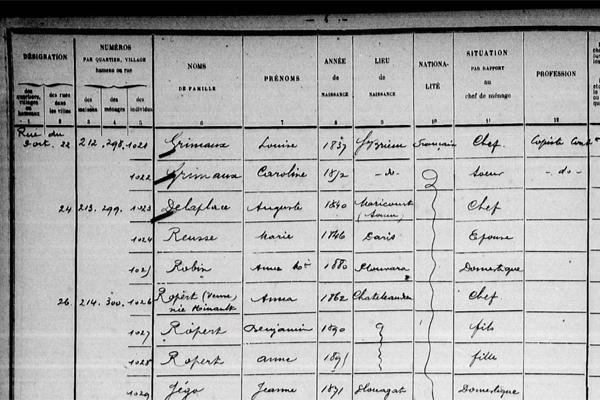 - 4 -
DÉSIGNATION NUMÉROS NOMS PRÉNOMS ANNÉE LIEU NATIONA- SITUATION PROFESSION
PAR QUARTIER, VILLAGE DE FAMILLE de de LITÉ PAR RAPPORT
hameau ou rue NAISSANCE NAISSANCE au
des quartiers, villages ou hameaux des rues dans les villes des maisons des ménages des individus chef de ménage
1 2 3 4 5 6 7 8 9 10 11 12
Rue du
Port. 22 212. 298. 1021 Grimaux Louise 1837 St Brieuc Française Chef Copiste
1022 Grimaux Caroline 1872 - do - Soeur - do -
24 213. 299. 1023 Delaplace Auguste 1840 Maricourt Chef
(Somme)
1024 Reusse Marie 1846 Paris Epouse
1025 Robin Anne Mie 1880 Plouvara Domestique
26. 214. 300. 1026 Ropert (Veuve, Anna 1862 Chateleaudren Chef
née Hinault
1027 Ropert Benjamin 1890 fils
1028 Ropert Anne 1891 fille
1029 Jégo Jeanne 1871 Plouagat Domestique